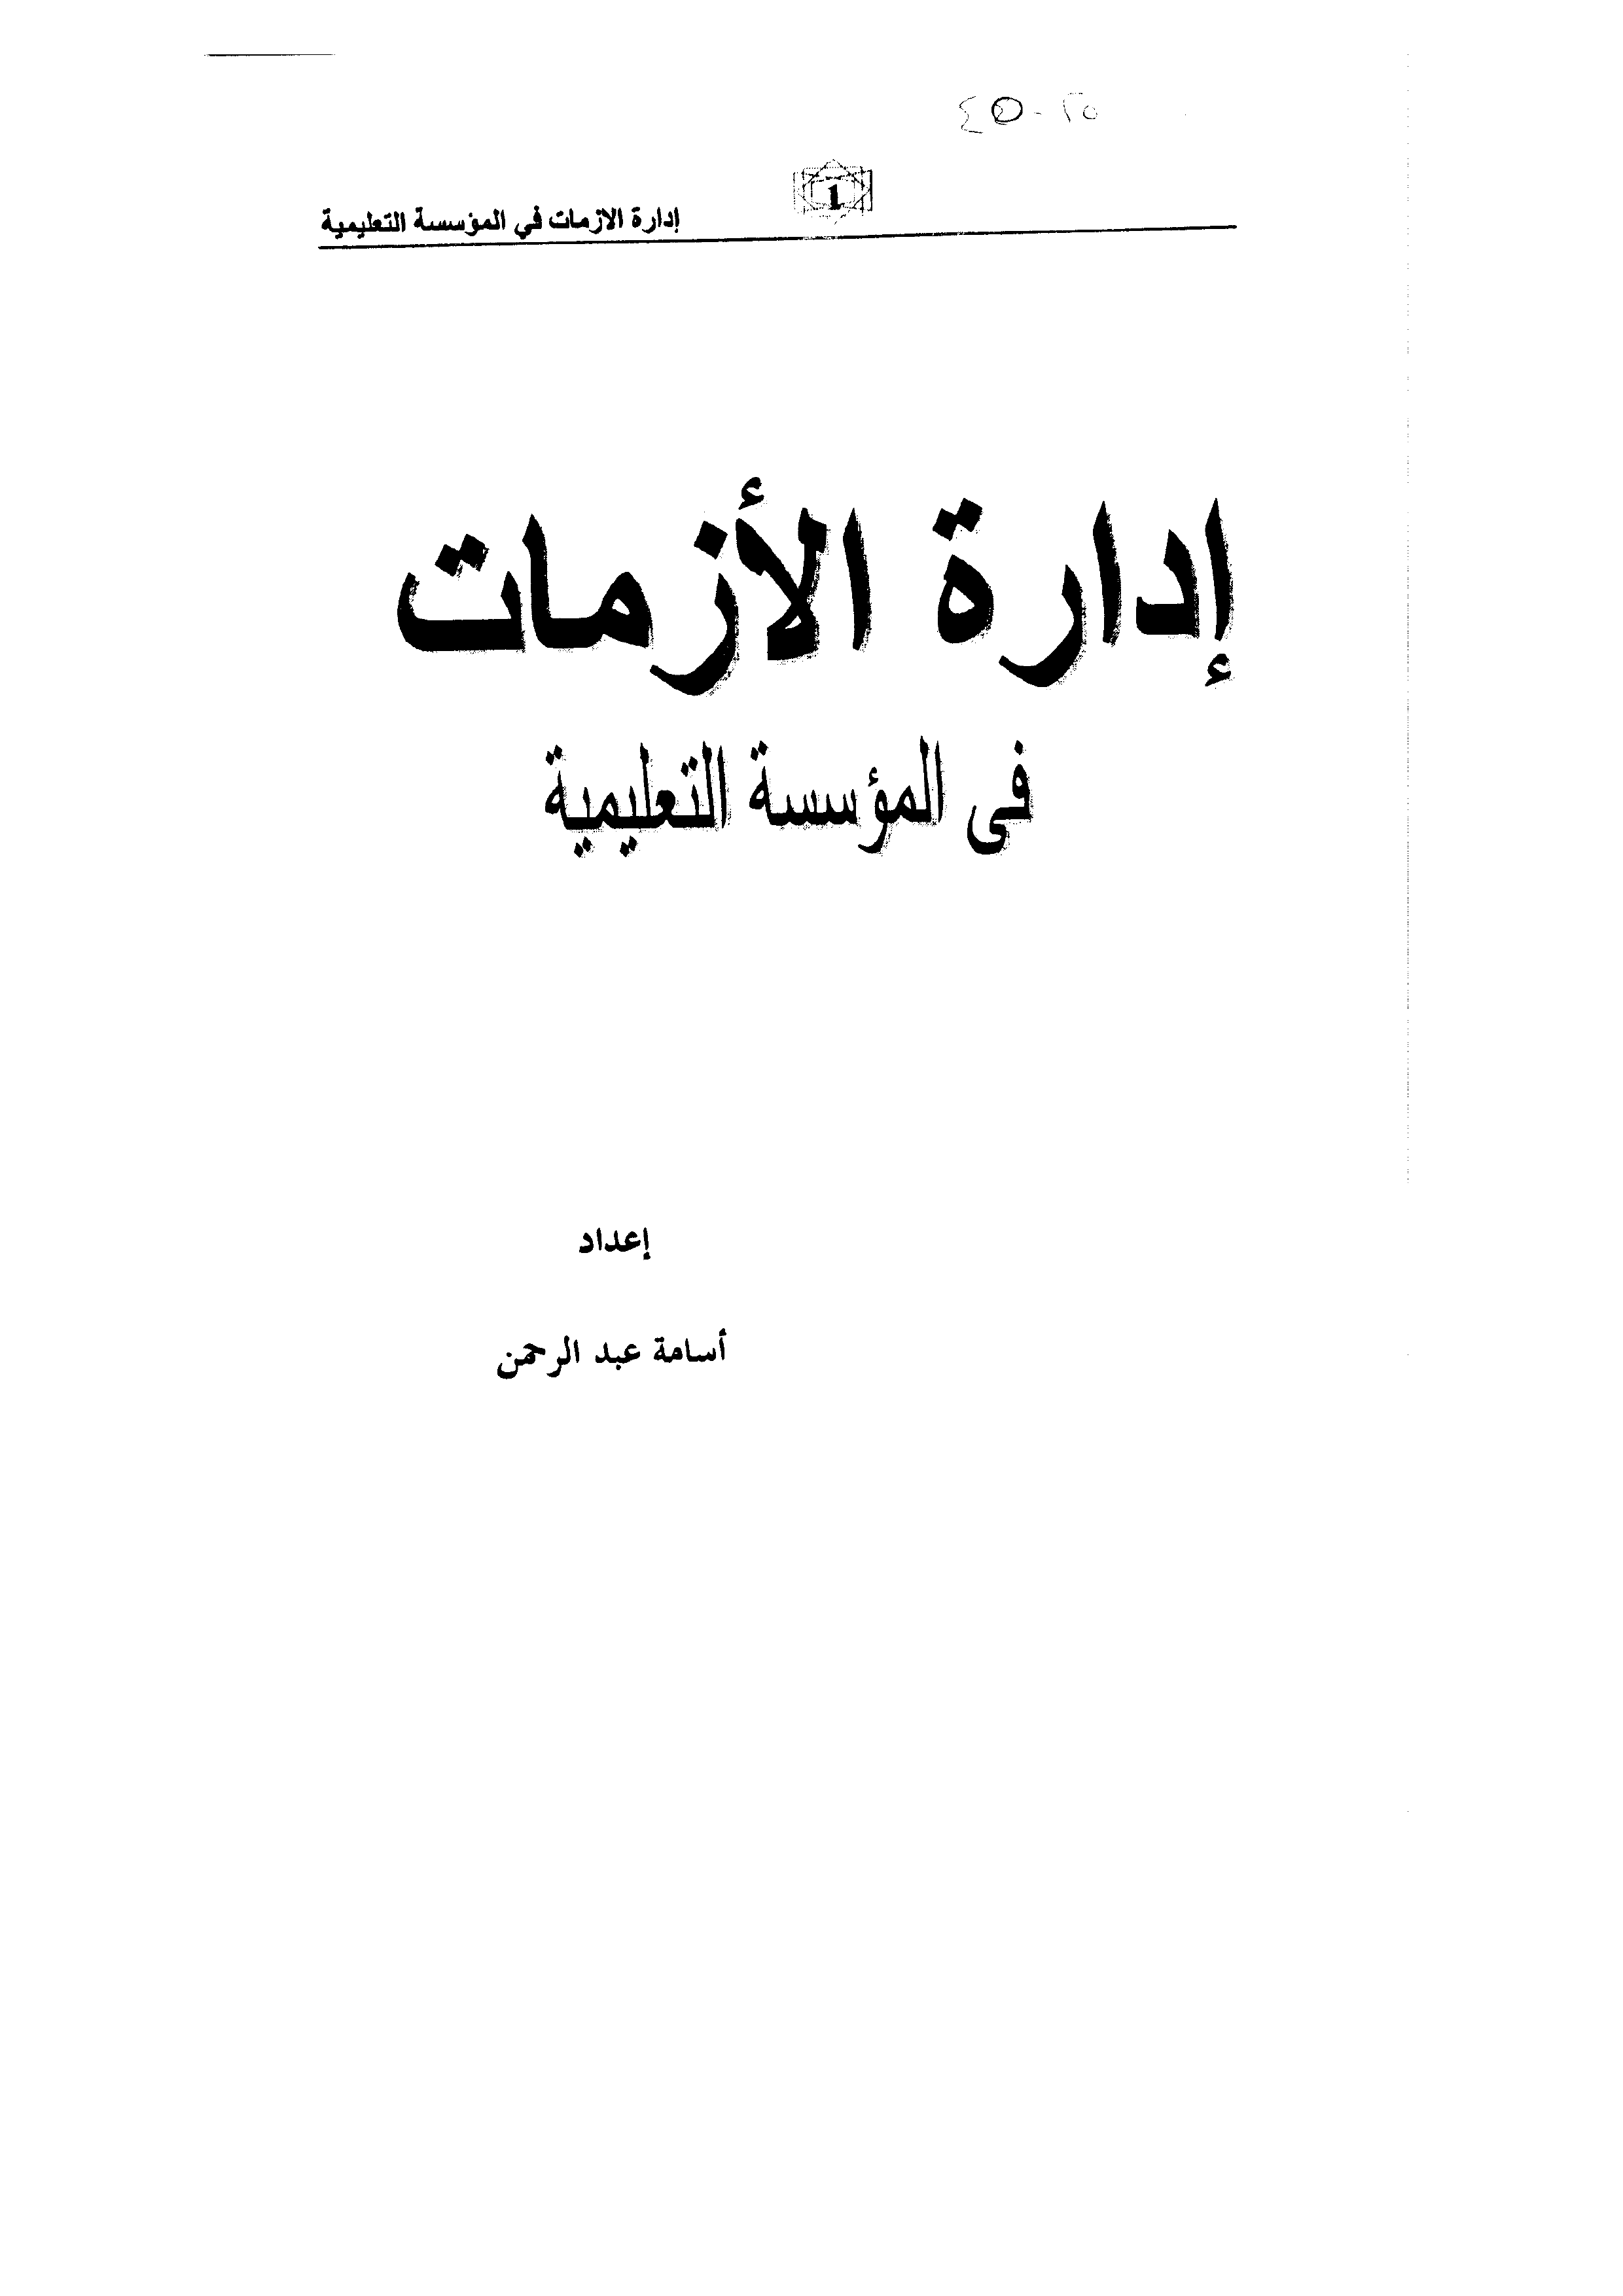 ٤٥-٢٥
1
إدارة الازمات في المؤسسة التعليمية
إدارة الأزمات
فى المؤسسة التعليمية
إعداد
أسامة عبد الرحمن